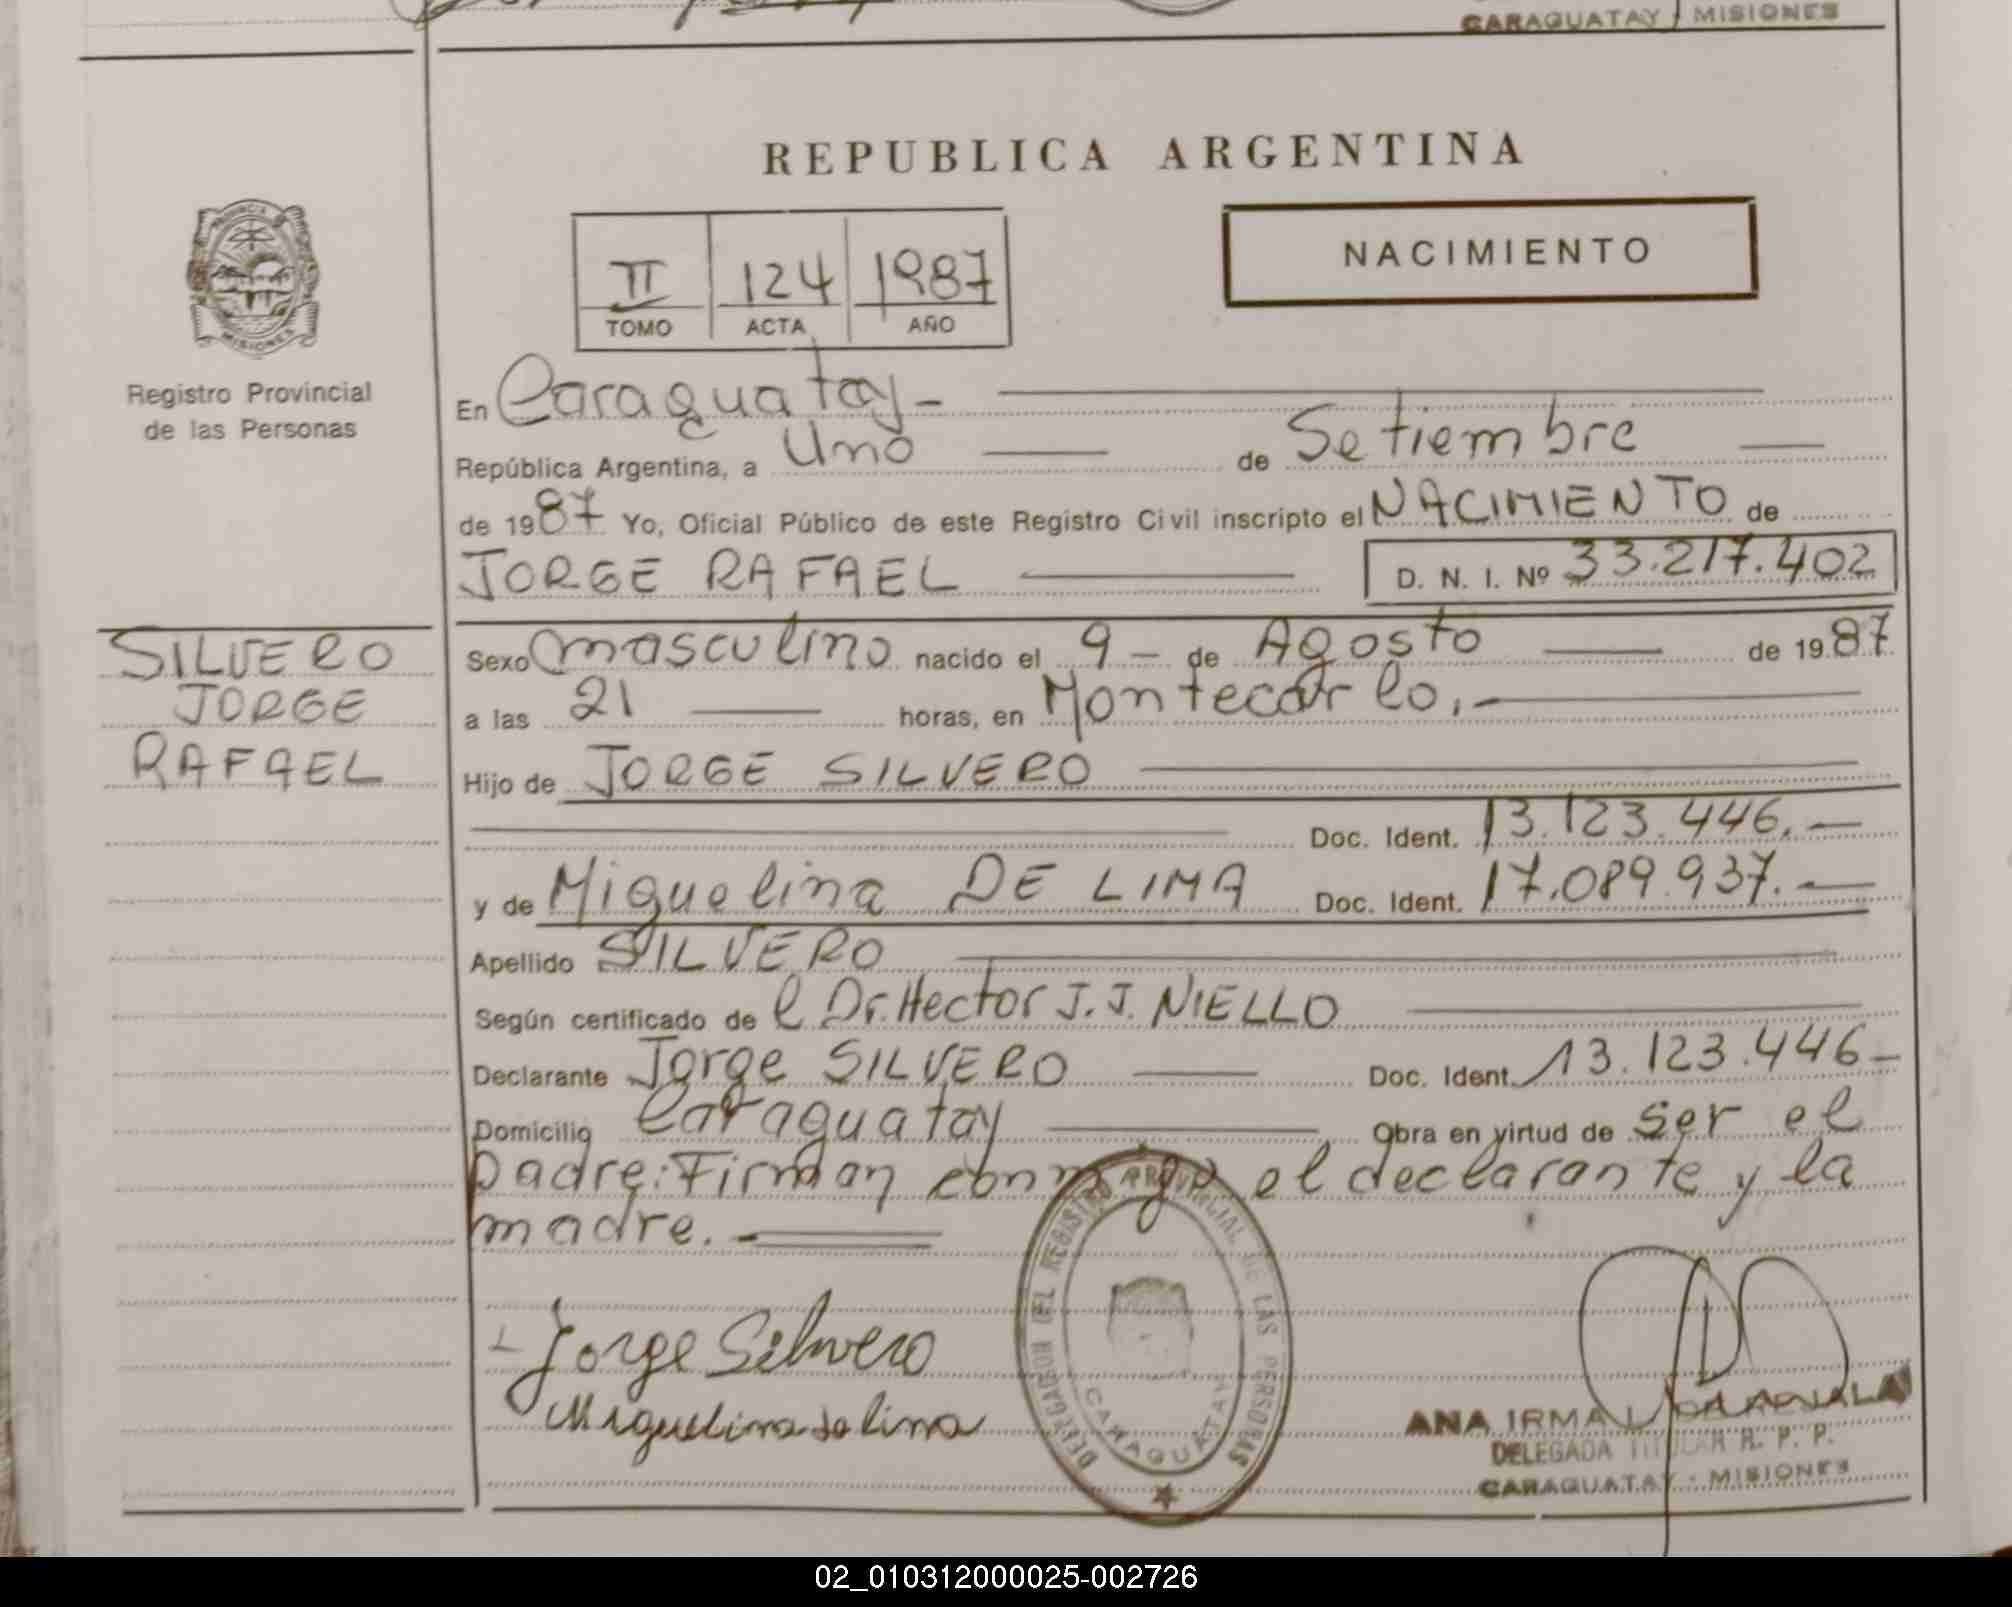 CARAGUATAY MISIONES
REPUBLICA ARGENTINA
NACIMIENTO
II 124 1987
TOMO ACTA AÑO
PROVINCIA DE MISIONES
Registro Provincial
de las Personas
En Caraguatay -
República Argentina, a Uno de Setiembre
de 1987 Yo, Oficial Público de este Registro Civil inscripto el NACIMIENTO de
JORGE RAFAEL D. N. I. Nº 33.217.402
SILVERO
JORGE
RAFAEL
Sexo masculino nacido el 9 - de Agosto de 1987
a las 21 horas, en Montecarlo.-
Hijo de JORGE SILVERO
Doc. Ident. 13.123.446.-
y de Miguelina DE LIMA Doc. Ident. 17.089.937.-
Apellido SILVERO
Según certificado del Dr. Hector J. J. NIELLO
Declarante Jorge SILVERO Doc. Ident. 13.123.446-
Domicilio Caraguatay Obra en virtud de ser el
padre: Firman conmigo el declarante y la
madre.-
Jorge Silvero
Miguelina de lima
DELEGACION DEL REGISTRO PROVINCIAL DE LAS PERSONAS
CARAGUATAY
ANA IRMA
DELEGADA TITULAR R. P. P.
CARAGUATAY - MISIONES
02_010312000025-002726